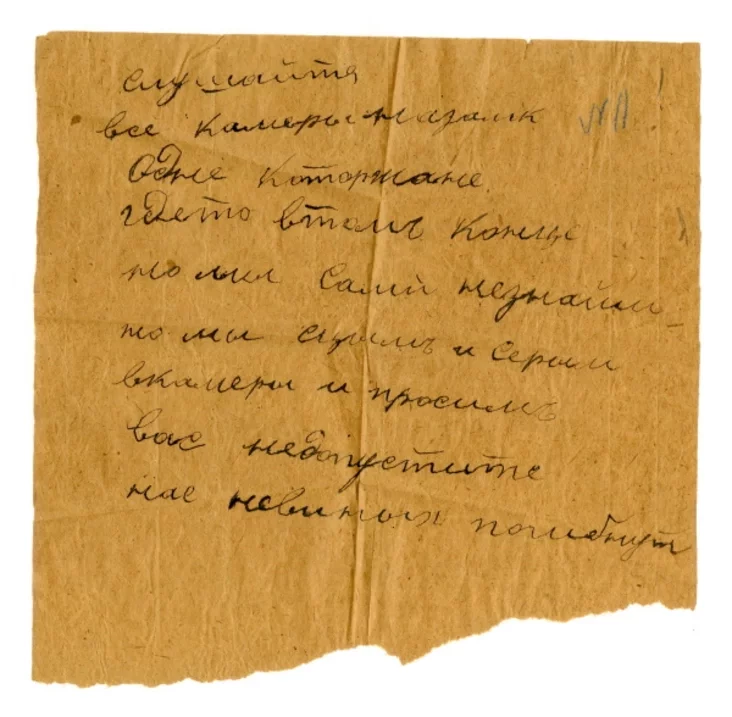 слушайтя
все камеры
№ 11
Одне каторжане
гдето втомъ конце
но ми самй незнаим
но мы сидимъ и серым
вкамеры и просимъ
вас недопустите
нас невиных погибнут